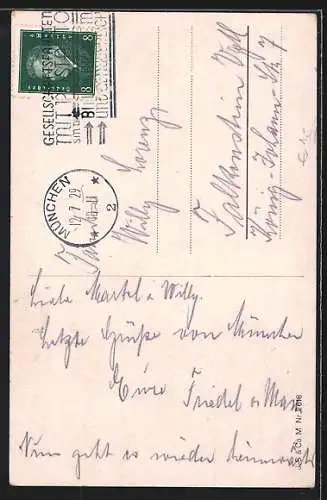 GESELLSCHAFTSFA
MIT POSTAUTO
MÜNCHEN
12.7.29
2
8 Deutsches Reich 8
Familie
Willy Lorenz
Falkenstein Vgtl
König-Johann-Str 7
Liebe Martel u Willy.
Letzte Grüße von München
Eure Friedel u Max
Nun geht es wieder heimwärts
& Co. M. Nr. 2618